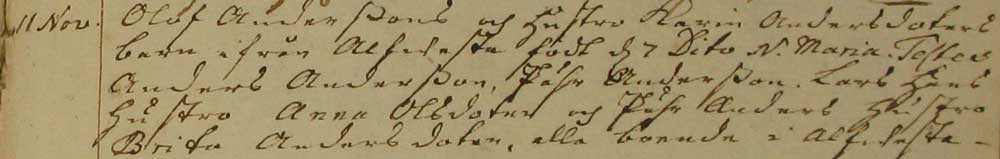 11 Nov. Olof Anderßons och Hustro Karin Andersdoters
barn ifrån Alfvesta födt d 7 Dito N. Maria. Testes
Anders Anderßon, Pähr Anderßon. Lars Hans
Hustro Anna Olsdoter och Pähr Anders Hustro
Brita Andersdoter, alla boende i Alfvesta -